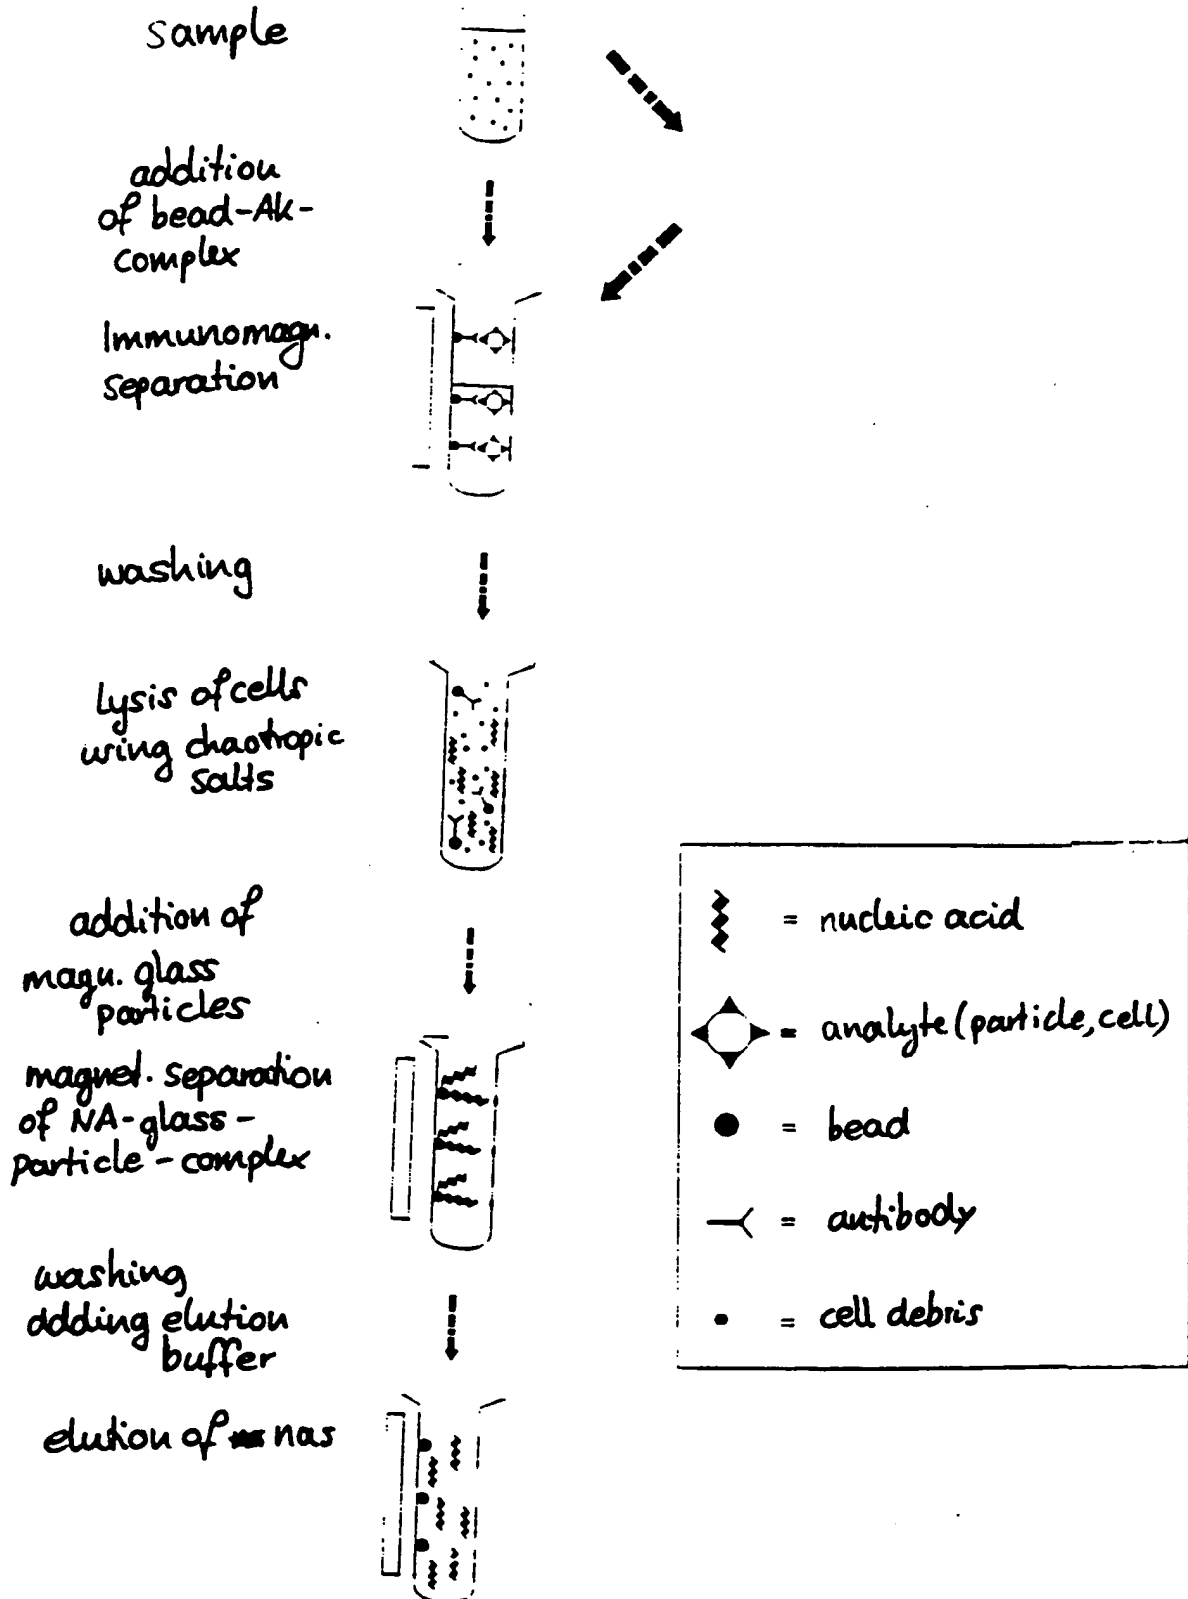 sample
addition
of bead-Ak-
complex
Immunomagn.
separation
washing
Lysis of cells
using chaotropic
salts
addition of
magn. glass
particles
magnet. separation
of NA-glass-
particle-complex
washing,
adding elution
buffer
elution of nas
= nucleic acid
= analyte (particle, cell)
= bead
= antibody
= cell debris